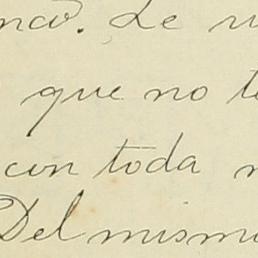 Le
que no
con toda
Del mismo